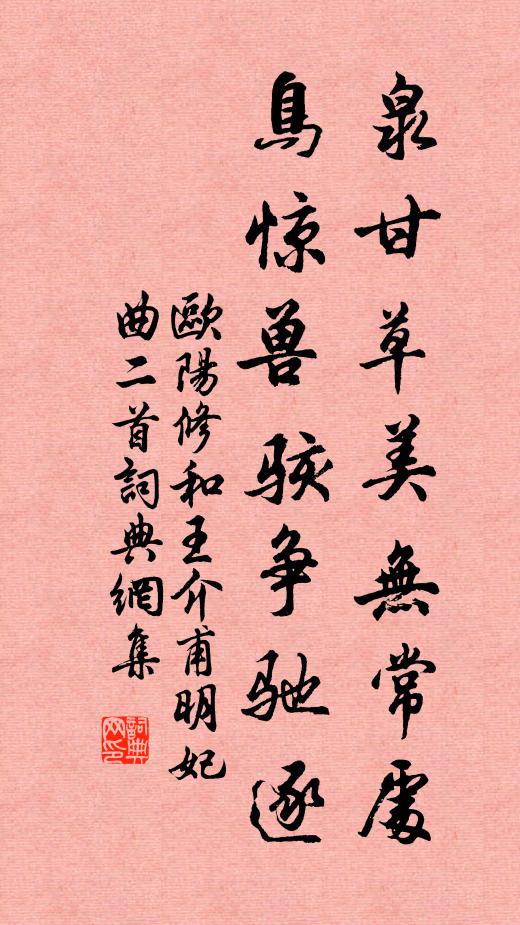 泉甘草美無常處
鳥惊兽骇争驰逐
歐陽修和王介甫明妃
曲二首詞典網集
詞典網印